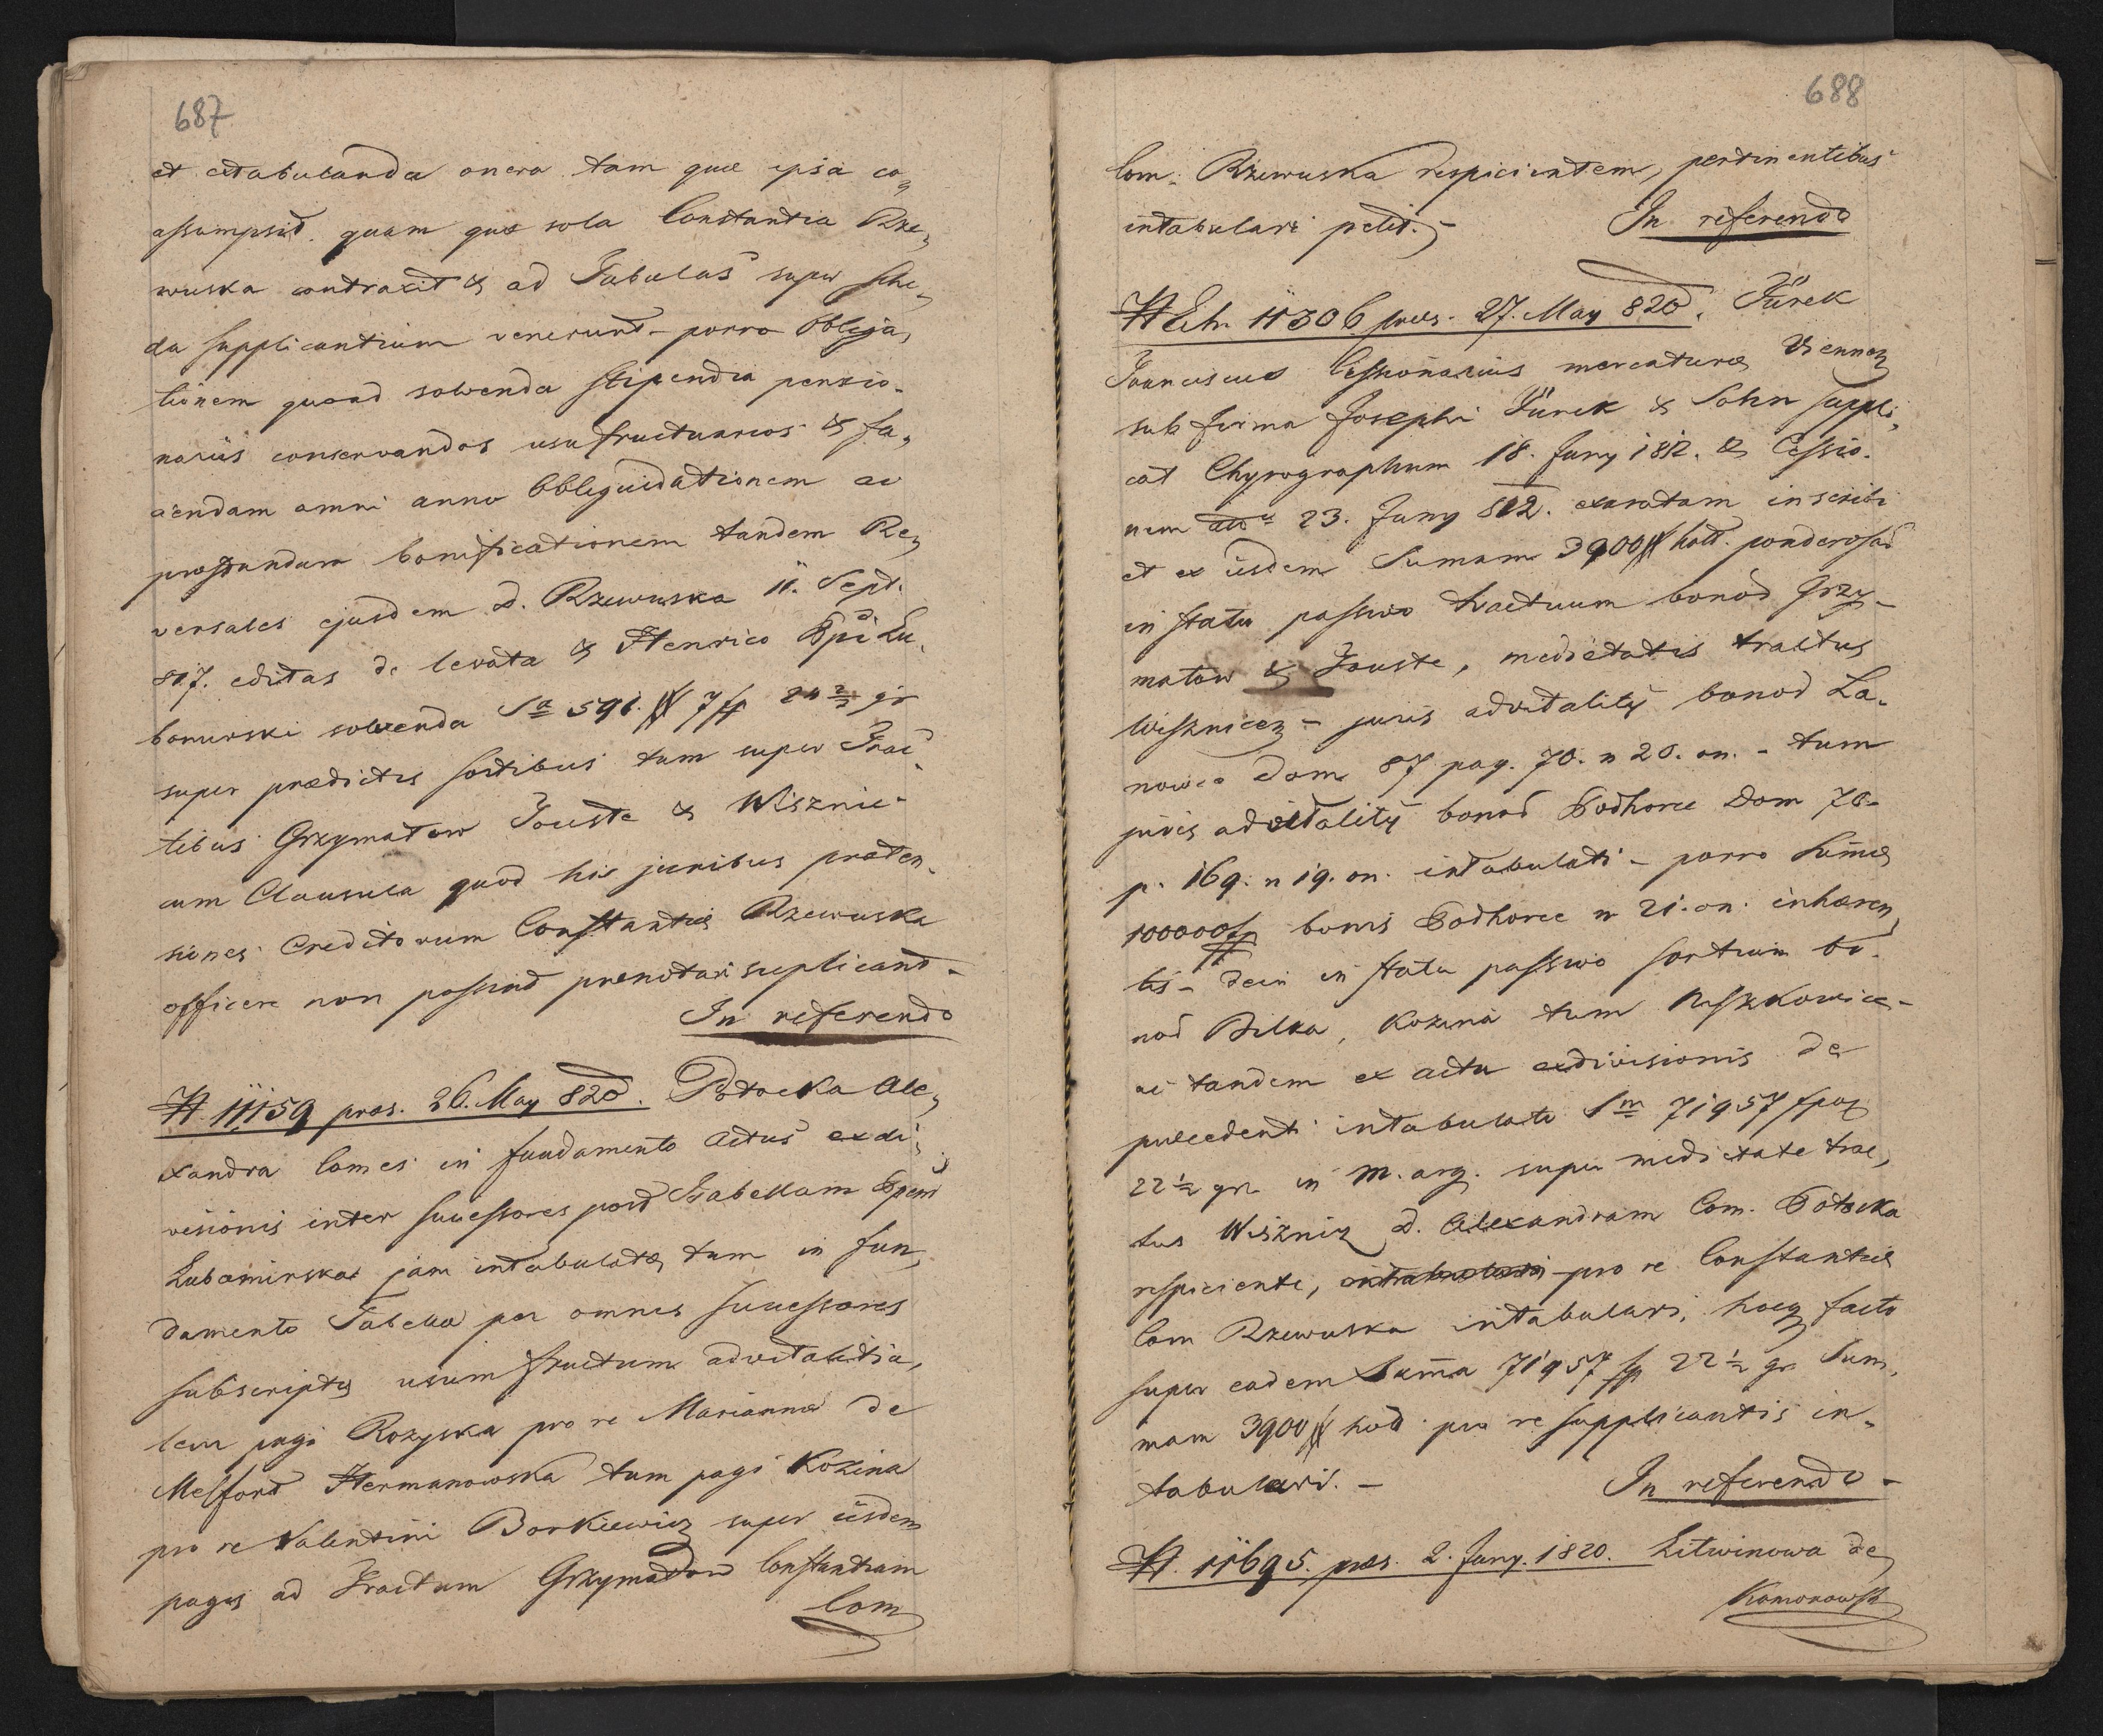 687
et extabulanda onera tam quæ ipsa co,
assumpsit quam quæ sola Constantia Rze,
wuska contraxit & ad Tabulas super sche,
da supplicantium venerunt – porro Obliga,
tionem quoad solvenda stipendia pensio-
nariis conservandos usufructuarios & fa,
ciendam omni anno Obliquidationem ac
præstandam bonificationem tandem Re,
versales ejusdem D. Rzewuska 11. Sept.
817. editas de levata & Henrico Ppi Lu,
bomirski solvenda Sa 591. # 7 fp 24 2/3 gr
super prædictis sortibus tum super Trac,
tibus Grzymałow Touste & Wisznie-
cum Clausula quod his juribus præten,
siones Creditorum Constantiæ Rzewuska
officere non possint prænotari suplicant –
In referendo
H. 11159 præs. 26. May 820. Potocka Ale,
xandra Comes in fundamento Actus exdi,
visionis inter successores post Isabellam Ppem
Lubomirska jam intabulatæ, tum in fun,
damento Tabella per omnes successores
subscriptæ usum fructum advitalitia,
lem pagi Rozyska pro re Marianna de
Melfort Hermanowska tum pagi Kozina
pro re Valentini Borkiewicz super iisdem
pagis ad Tractum Grzymałow Constantiam
Com
688
Com. Rzewuska respicientem, pertinentibus
intabulari petit. –
In referendo
H Eih. 11306 præs. 27. May 820. Türek
Franciscus Cessionarius mercaturæ Viennæ
sub firma Josephi Türek & Sohn suppli,
cat Chyrographum 18. Juny 1812. & Cessio-
nem 23. Juny 812. exaratam inscribi
et ex iisdem Sumam 3900 # holl. ponderosad
in statu passivo tractuum bonod Grzy-
matow & Touste, medietatis tractus
Wisznicz – juris advitality bonod La-
nowce Dom 87 pag. 70. n 20. on. – tum
juris advitality bonod Podhorce Dom 70-
p. 169. n 19. on. intabulati – porro Sumæ
100000 fp bonis Podhorce n 21. on. inhæren,
tis – dein in statu passivo sortium bo-
nod Bilka, Kozina tum Ruszkowice –
ac tandem ex actu exdivisionis de
præcedenti intabulata Sm 71957 fpol
22 1/2 gr. in M. arg. super medietate trac,
tus Wisznicz D. Alexandram Com. Potocka
respiciente, intabulari pro re Constantiæ
Com Rzewuska intabulari, hocq facto
super eadem Suma 71957 fp 22 1/2 gr Sum,
mam 3900 # hod pro re supplicantis in-
tabulari. –
In referendo –
H. 11695. præs. 2. Juny. 1820. Litwinowa de
Komorowsk